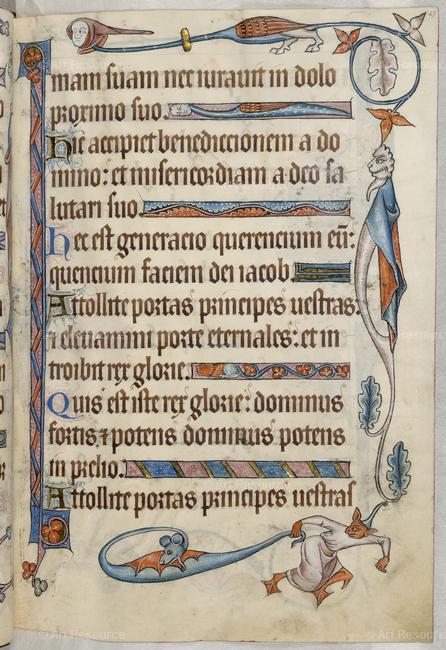 mam suam nec iurauit in dolo
proximo suo.
Hic accipiet benediccionem a do
mino: et misericordiam a deo sa
lutari suo.
Hec est generacio querencium eū:
querencium faciem dei iacob.
Attollite portas principes uestras:
⁊ eleuamini porte eternales: et in
troibit rex glorie.
Quis est iste rex glorie: dominus
fortis, ⁊ potens dominus potens
in prelio.
Attollite portas principes uestras
© Art Resource
© Art Resource
© Art Resource